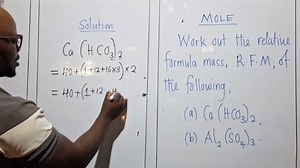 Solution
Ca(HCO₃)₂
=40+(1+12+16×3)×2
=40+(1+12+4
MOLE
Work out the relative
formula mass, R.F.M, of
the following;
(a) Ca(HCO₃)₂
(b) Al₂(SO₄)₃.